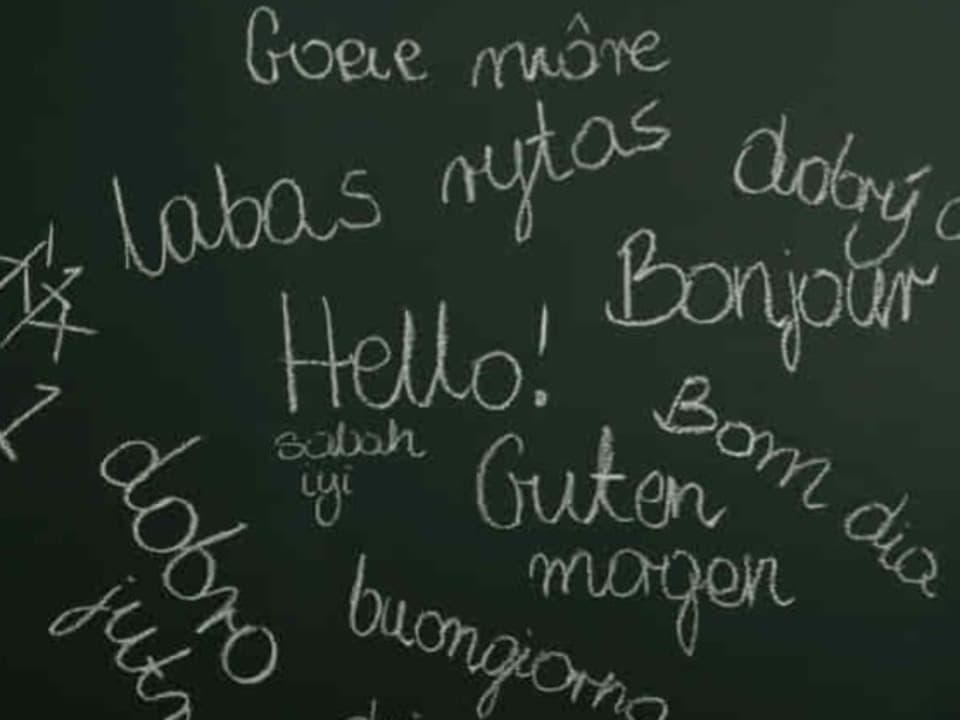 Goeie môre
labas rytas
dobrý
Bonjour
Hello!
sabah
iyi
Bom dia
Guten
magen
dobro
buongiorno